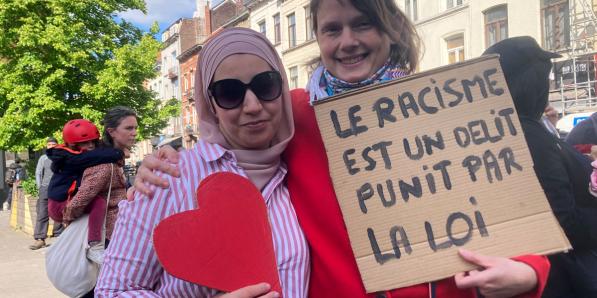 LE RACISME
EST UN DELIT
PUNIT PAR
LA LOI